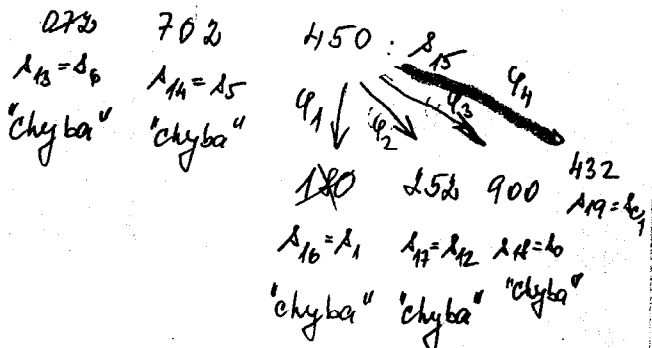 072 702 450 : s15
s13 = s6 s14 = s5
"chyba" "chyba" φ1 φ2 φ3 φ4
180 252 900 432
s16 = s1 s17 = s12 s18 = s0 s19 = sc1
"chyba" "chyba" "chyba"